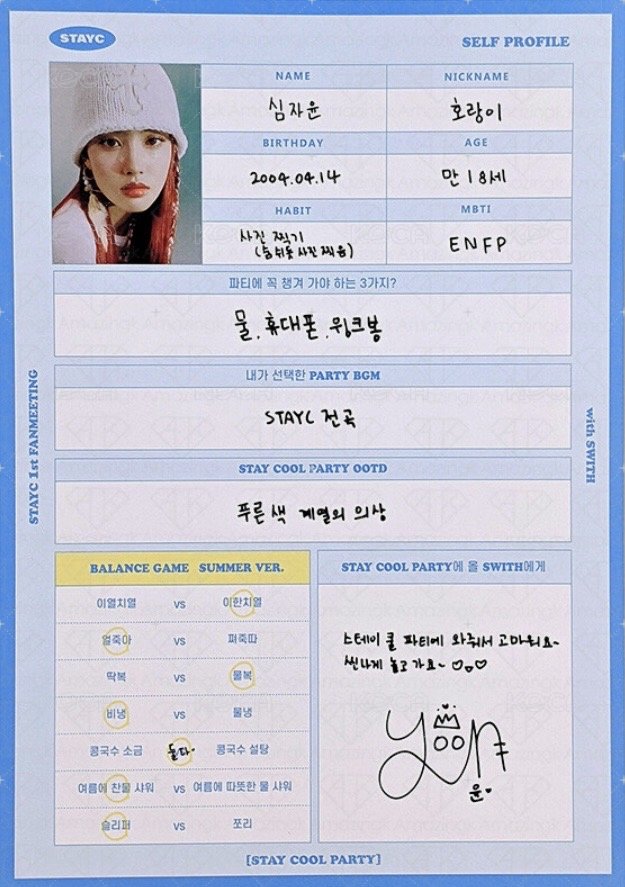 STAYC
SELF PROFILE
NAME
NICKNAME
심자윤
호랑이
BIRTHDAY
AGE
2004.04.14
만 18세
HABIT
MBTI
사진 찍기
(동식물 사진 찍음)
ENFP
파티에 꼭 챙겨 가야 하는 3가지?
물, 휴대폰, 윙크봉
내가 선택한 PARTY BGM
STAYC 전곡
STAY COOL PARTY OOTD
푸른색 계열의 의상
STAYC 1st FANMEETING
with SWITH
BALANCE GAME SUMMER VER.
이열치열 VS 이한치열
얼죽아 VS 쪄죽따
딱복 VS 물복
비냉 VS 물냉
콩국수 소금 둘다. 콩국수 설탕
여름에 찬물 샤워 VS 여름에 따뜻한 물 샤워
슬리퍼 VS 쪼리
STAY COOL PARTY에 올 SWITH에게
스테이 쿨 파티에 와줘서 고마워요~
씬나게 놀고 가요~ ♡♡♡
YOON
윤
[STAY COOL PARTY]